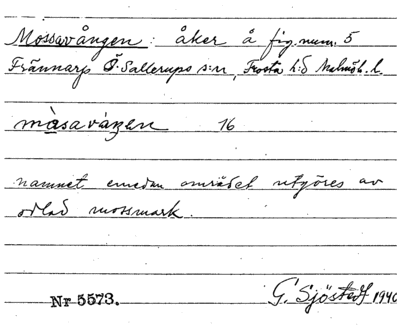 Mossavången: åker å fig. num. 5
Frännarp Ö. Sallerups s:n, Frosta h:d Malmöh. l.
màsavàŋen 16
namnet emedan området utgöres av
odlad mossmark.
Nr 5573. G. Sjöstedt 1940